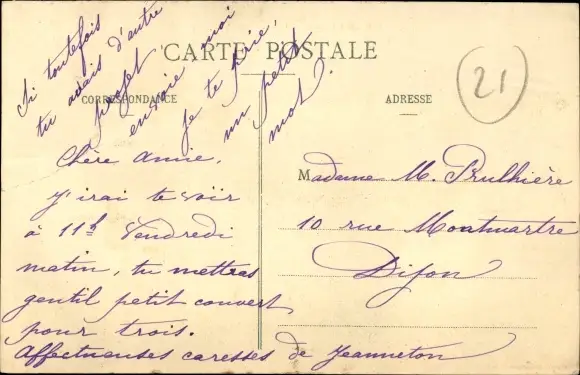 Si toutefois
tu avais d'autre
projet
envoie moi
je te prie,
un petit
mot.
CARTE POSTALE
21
CORRESPONDANCE
ADRESSE
Chère amie,
J'irai te voir
à 11h Vendredi
matin, tu mettras
gentil petit couvert
pour trois.
Affectueuses caresses de Jeanneton
Madame M. Prulhière
10 rue Montmartre
Dijon